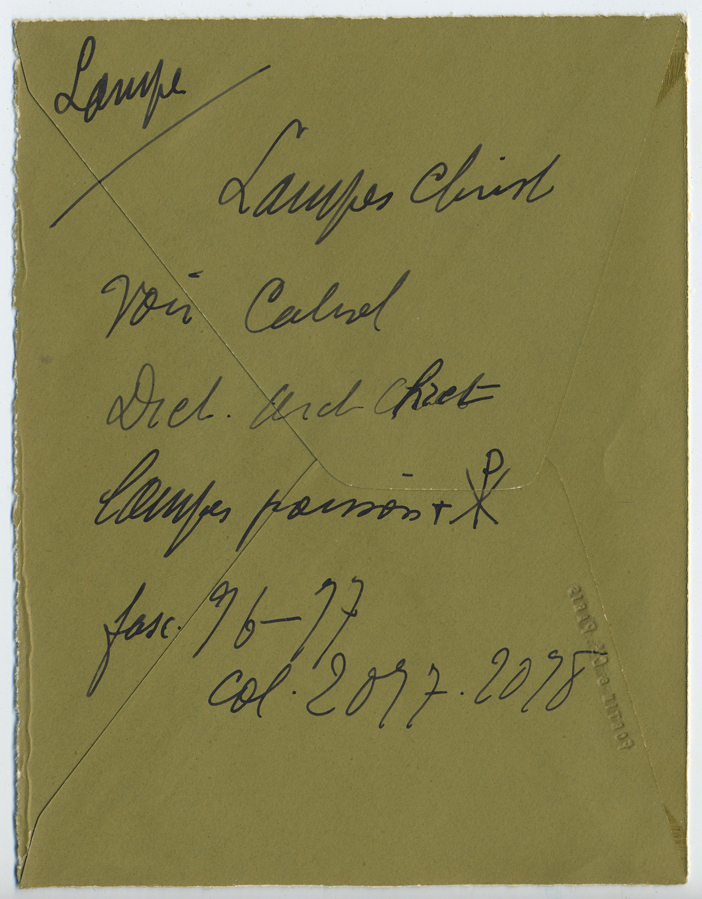 Lampe
Lampes Christ
Voir Cabrol
Dict. Arch Chret
Lampes poissons + ☧
fasc. 96–97
col. 2097. 2098